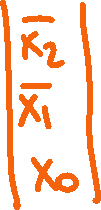 |x̅₂|
|x̅₁|
|x₀|